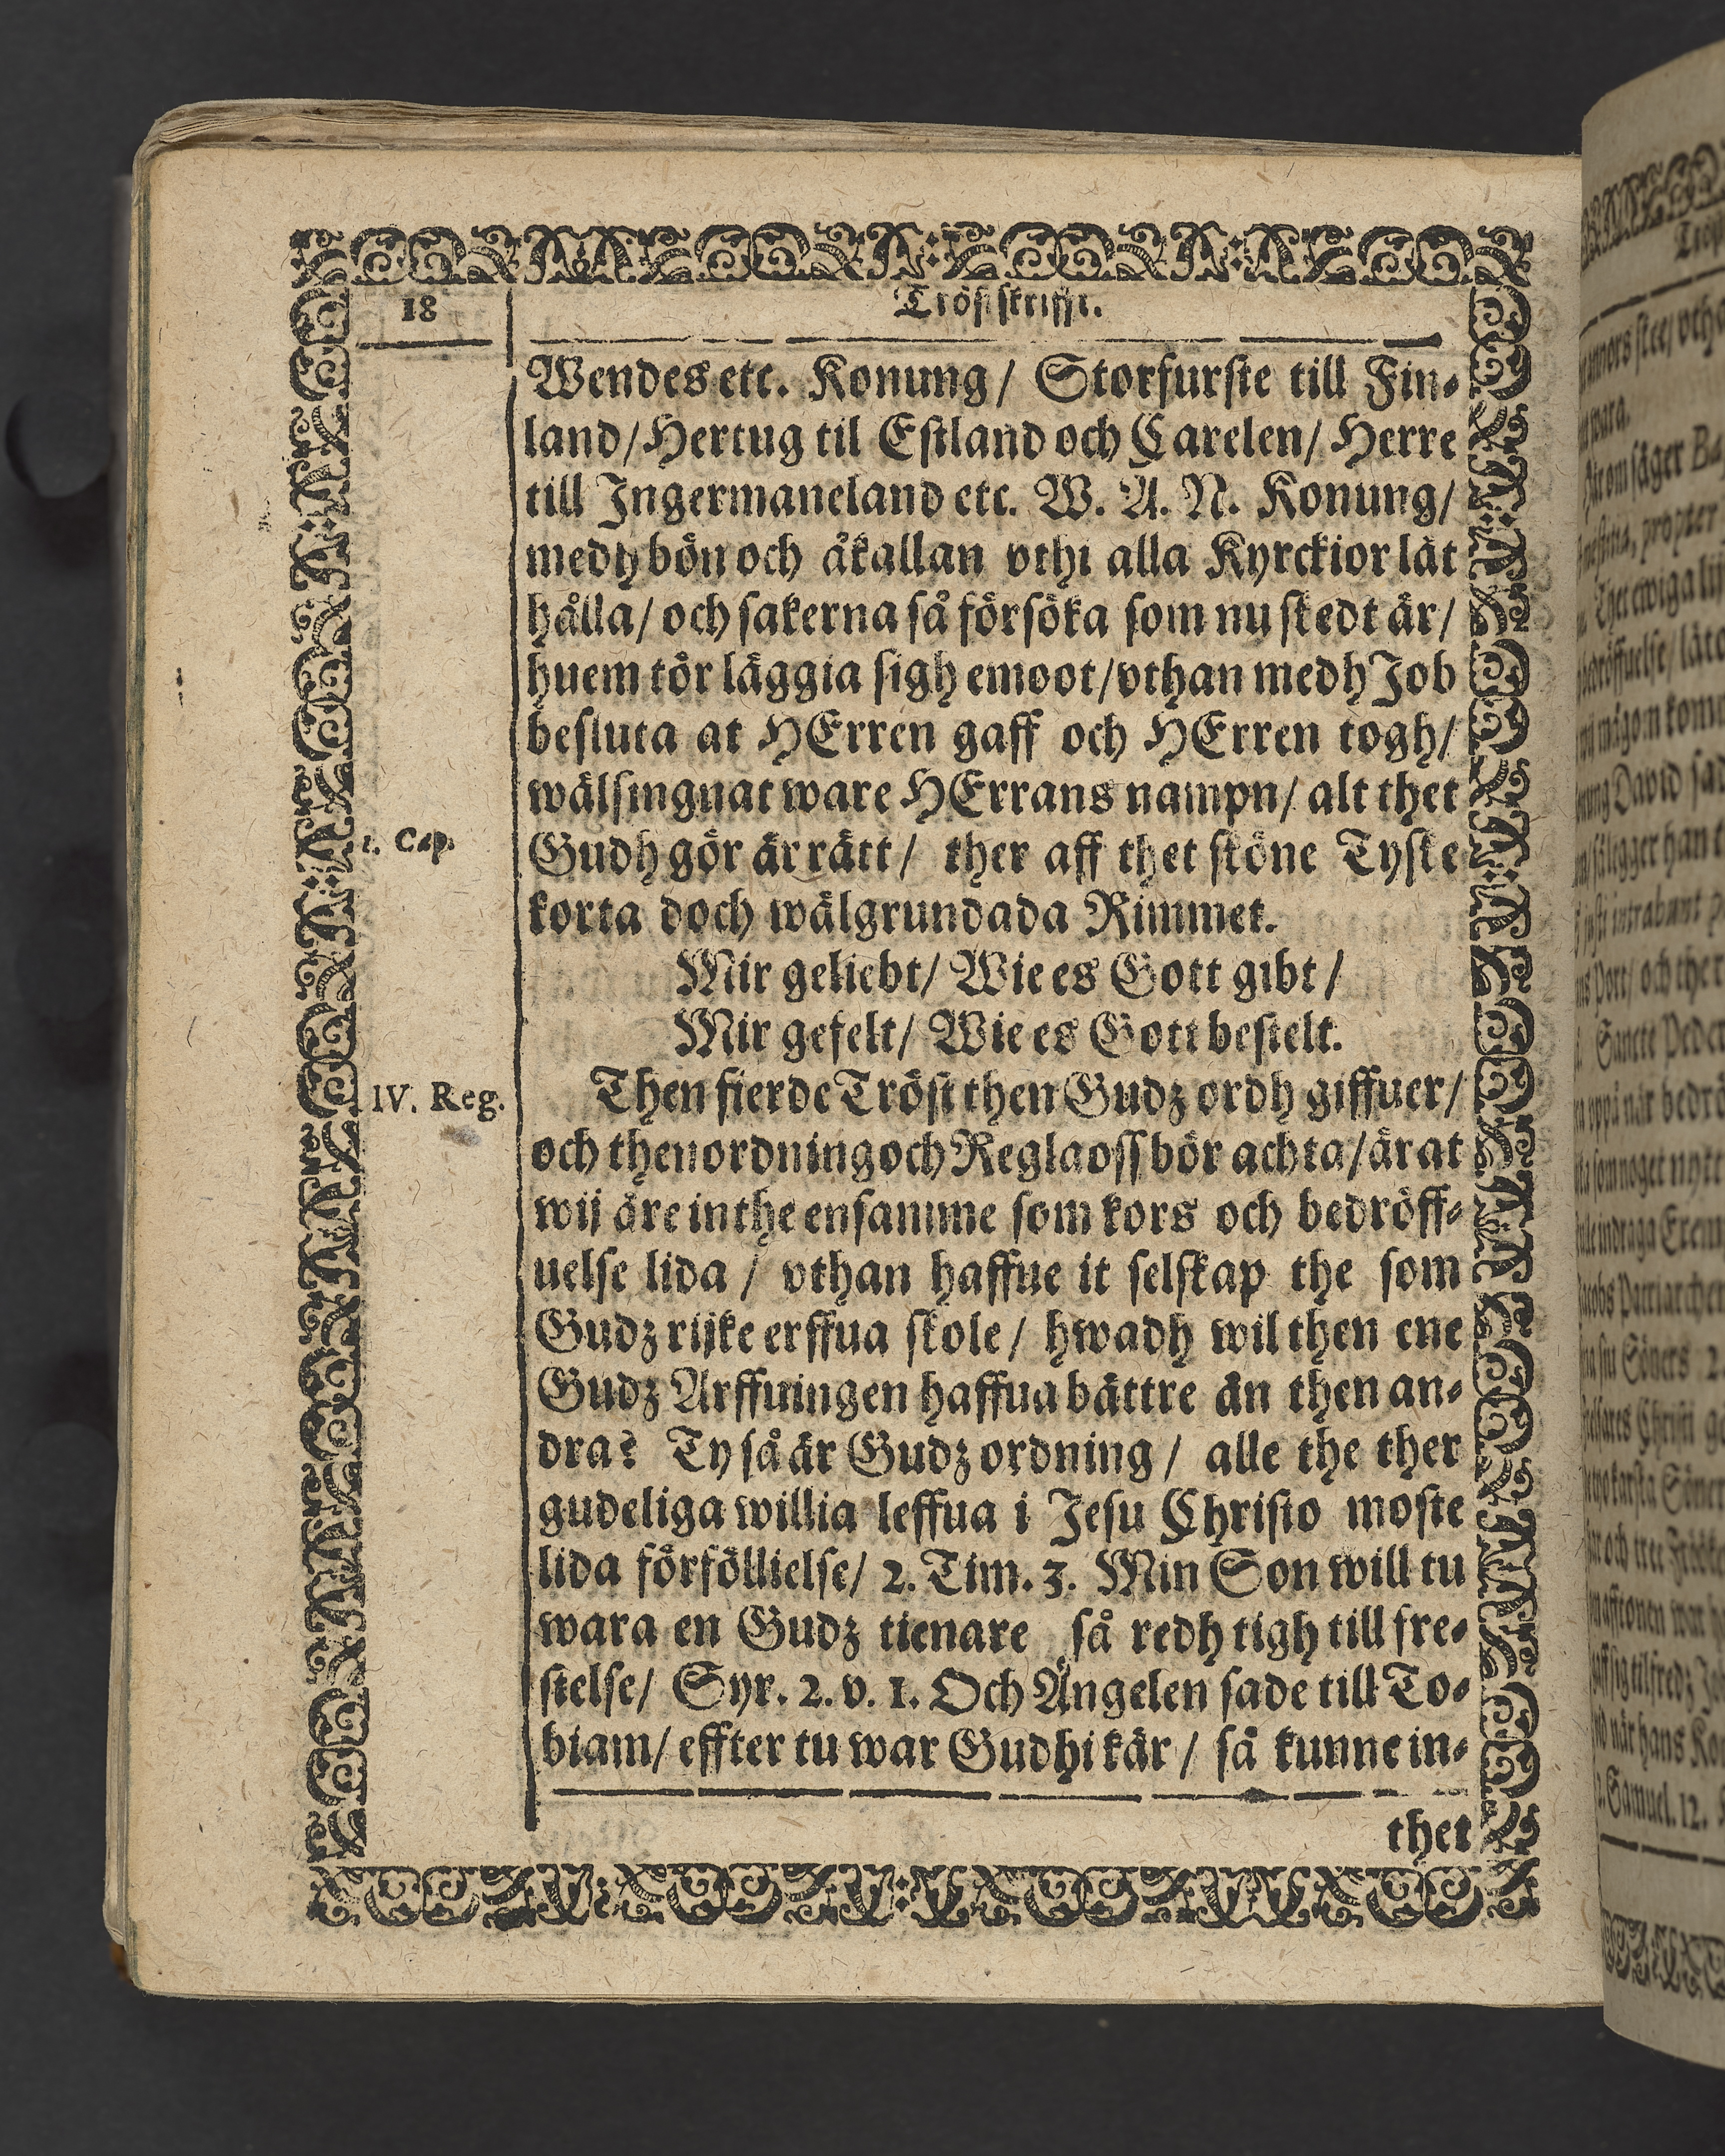 18
Tröstskrifft.
Wendes etc. Konung/ Storfurste till Fin-
land/ Hertug til Estland och Carelen/ Herre
till Ingermaneland etc. W. A. N. Konung/
medh bön och åkallan vthi alla Kyrckior låt
hålla/ och sakerna så försöka som nu skedt är/
huem tör läggia sigh emoot/ vthan medh Job
besluta at HErren gaff och HErren togh/
wälsingnat ware HErrans nampn/ alt thet
1. Cap.
Gudh gör är rätt/ ther aff thet sköne Tyske
korta doch wälgrundada Rimmet.
Mir geliebt/ Wie es Gott gibt/
Mir gefelt/ Wie es Gott bestelt.
IV. Reg.
Then fierde Tröst then Gudz ordh giffuer/
och then ordning och Regla oss bör achta/ är at
wij äre inthe ensamme som kors och bedröff-
uelse lida/ vthan haffue it selskap the som
Gudz rijke erffua skole/ hwadh wil then ene
Gudz Arffuingen haffua bättre än then an-
dra? Ty så är Gudz ordning/ alle the ther
gudeliga willia leffua i Jesu Christo moste
lida förföllielse/ 2. Tim. 3. Min Son will tu
wara en Gudz tienare så redh tigh till fre-
stelse/ Syr. 2. v. 1. Och Ängelen sade till To-
biam/ effter tu war Gudhi kär/ så kunne in-
thet